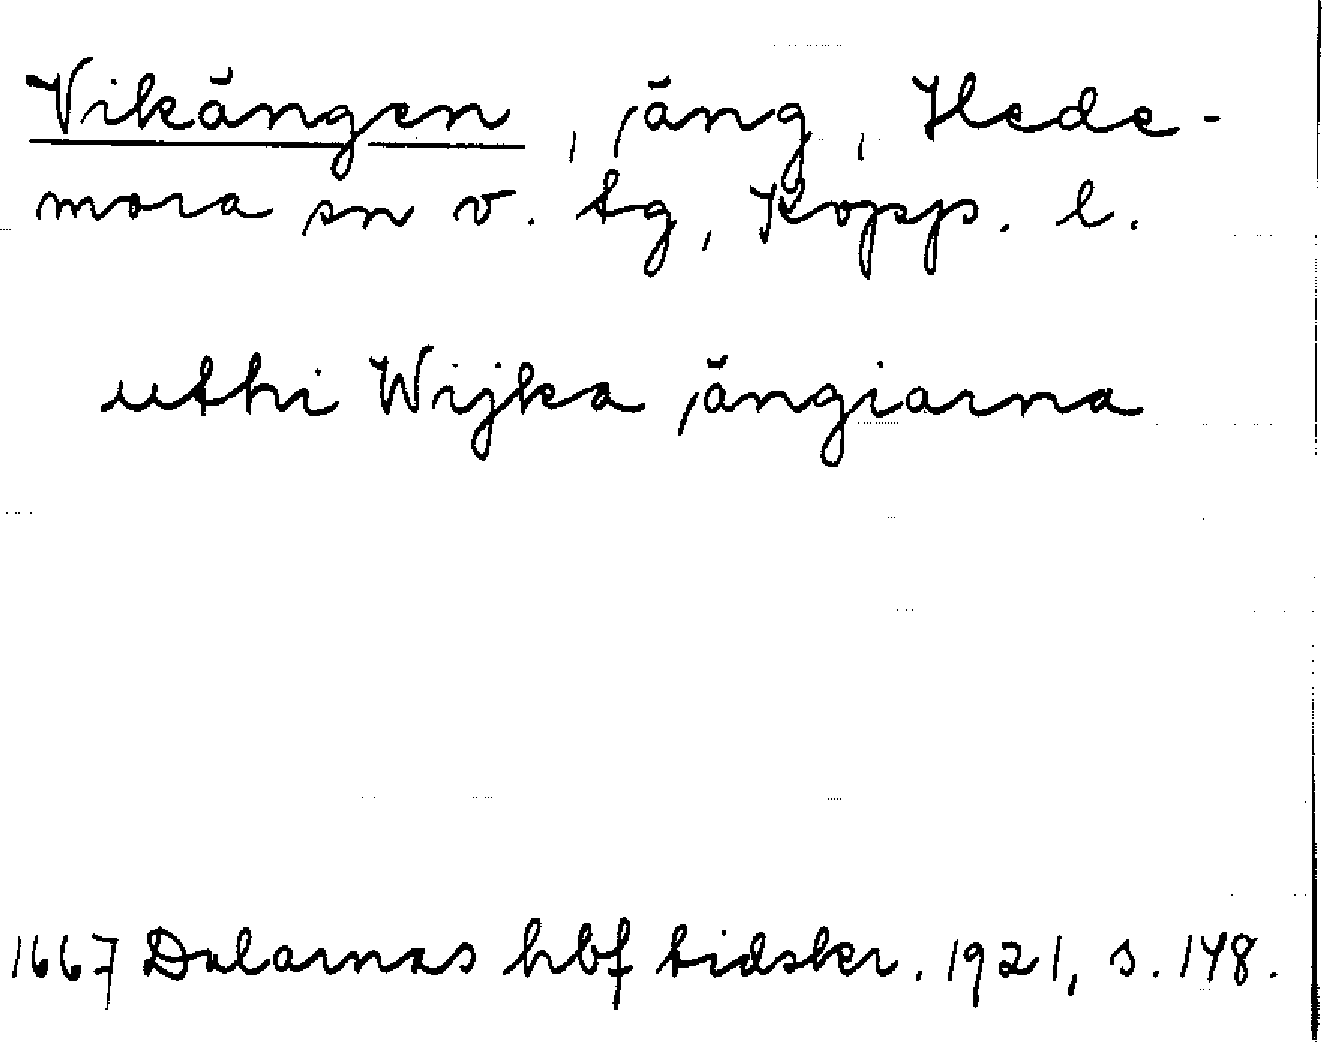 Vikängen, äng, Hede-
mora sn v. tg, Kopp. l.
uthi Wijka ängiarna
1667 Dalarnas hbf tidskr. 1921, s. 148.